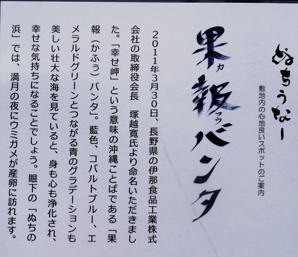 ぬちうなー
敷地内の心地良いスポットのご案内
果報バンタ
カフウ
2011年3月30日、長野県の伊那食品工業株式
会社の取締役会長 塚越寛氏より命名いただきまし
た。「幸せ岬」という意味の沖縄ことばである「果
報(かふう)バンタ」。藍色、コバルトブルー、エ
メラルドグリーンとつながる青のグラデーションも
美しい壮大な海を見ていると、身も心も浄化され、
幸せな気持ちになることでしょう。眼下の「ぬちの
浜」では、満月の夜にウミガメが産卵に訪れます。